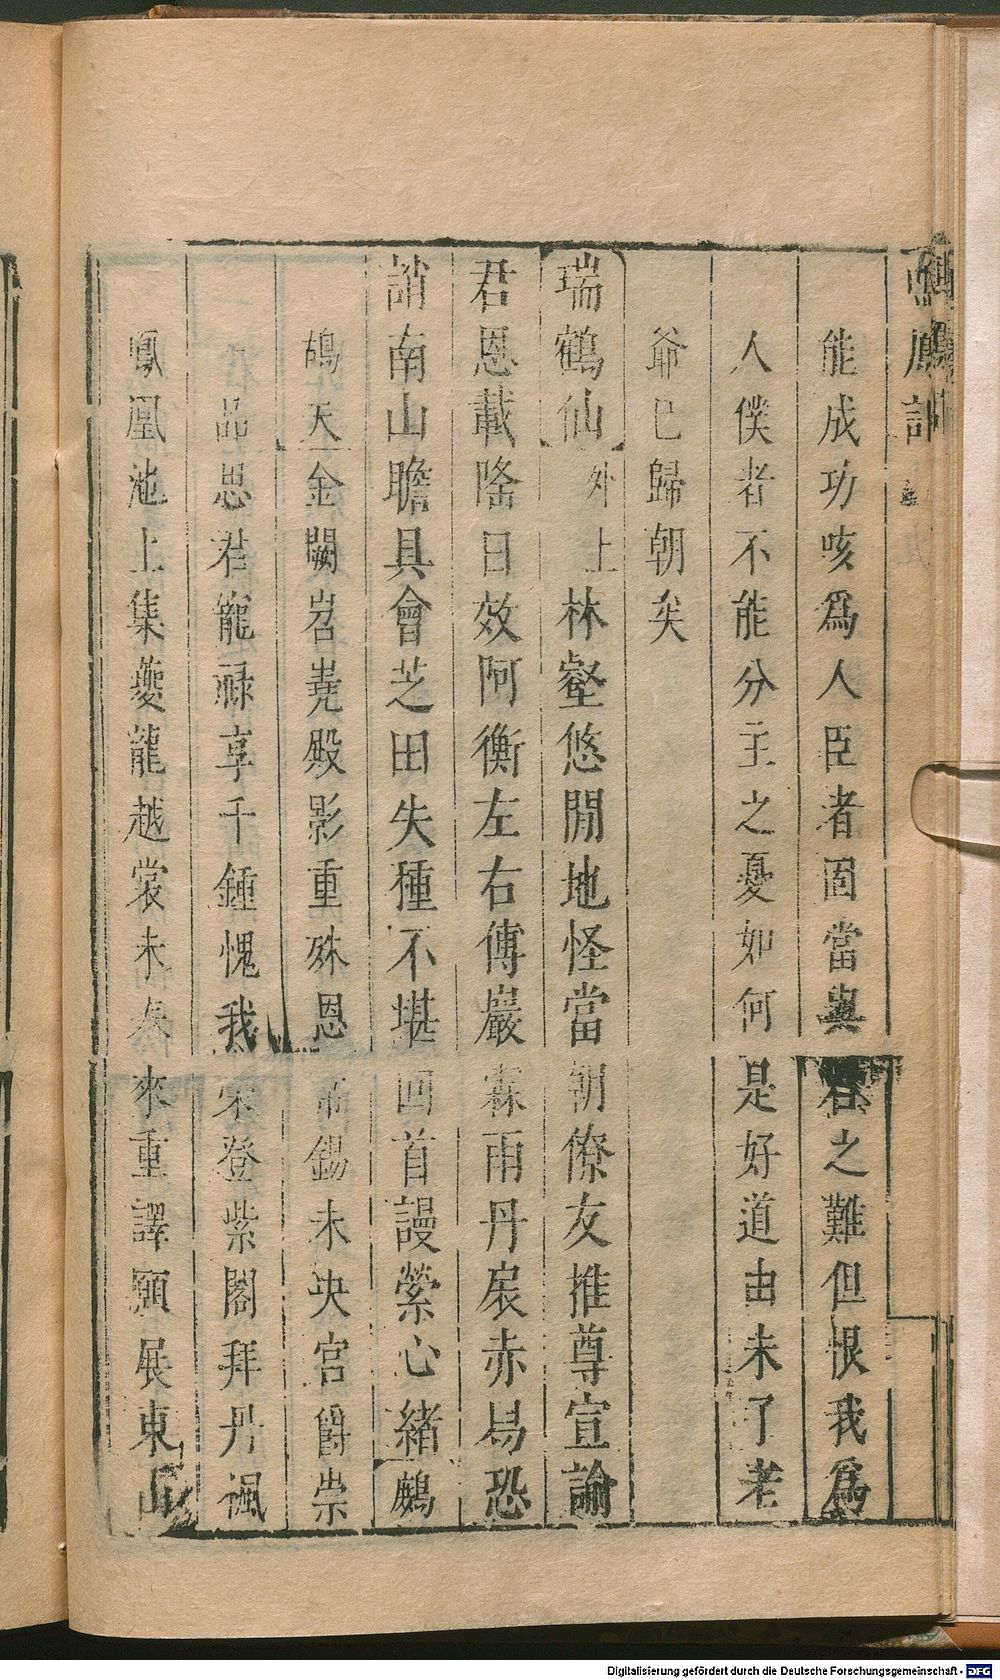 能成功咳爲人臣者固當與君之難但恨我爲
人僕者不能分主之憂如何是好道由未了老
爺已歸朝矣
瑞鶴仙外上林壑悠閒地怪當朝僚友推尊宣論
君恩載隆日效阿衡左右傳巖霖雨丹扆赤舄恐
誚南山瞻具會芝田失種不堪回首謾縈心緒鷓
鴣天金闕岧嶤殿影重殊恩帝錫未央宮爵崇
一品思君寵祿享千鍾愧我來登紫閣拜丹楓
鳳凰池上集夔龍越裳未奏來重譯願展東山
Digitalisierung gefördert durch die Deutsche Forschungsgemeinschaft - DFG